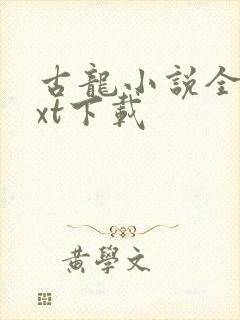 古龍小說全
xt下載
黃學文